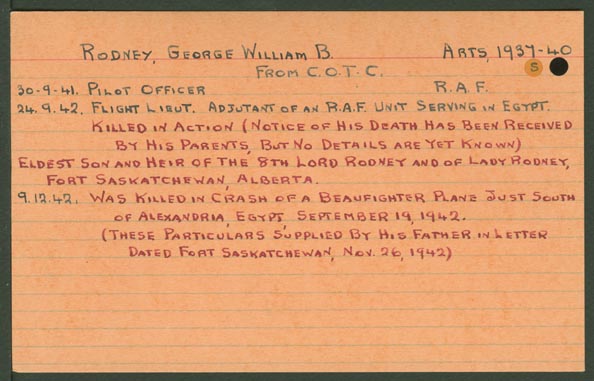 RODNEY, GEORGE WILLIAM B. ARTS, 1937-40
FROM C.O.T.C. S
30-9-41. PILOT OFFICER R.A.F.
24.9.42. FLIGHT LIEUT. ADJUTANT OF AN R.A.F. UNIT SERVING IN EGYPT.
KILLED IN ACTION (NOTICE OF HIS DEATH HAS BEEN RECEIVED
BY HIS PARENTS, BUT NO DETAILS ARE YET KNOWN)
ELDEST SON AND HEIR OF THE 8TH LORD RODNEY AND OF LADY RODNEY,
FORT SASKATCHEWAN, ALBERTA.
9.12.42. WAS KILLED IN CRASH OF A BEAUFIGHTER PLANE JUST SOUTH
OF ALEXANDRIA, EGYPT, SEPTEMBER 19, 1942.
(THESE PARTICULARS SUPPLIED BY HIS FATHER IN LETTER
DATED FORT SASKATCHEWAN, NOV. 26, 1942)